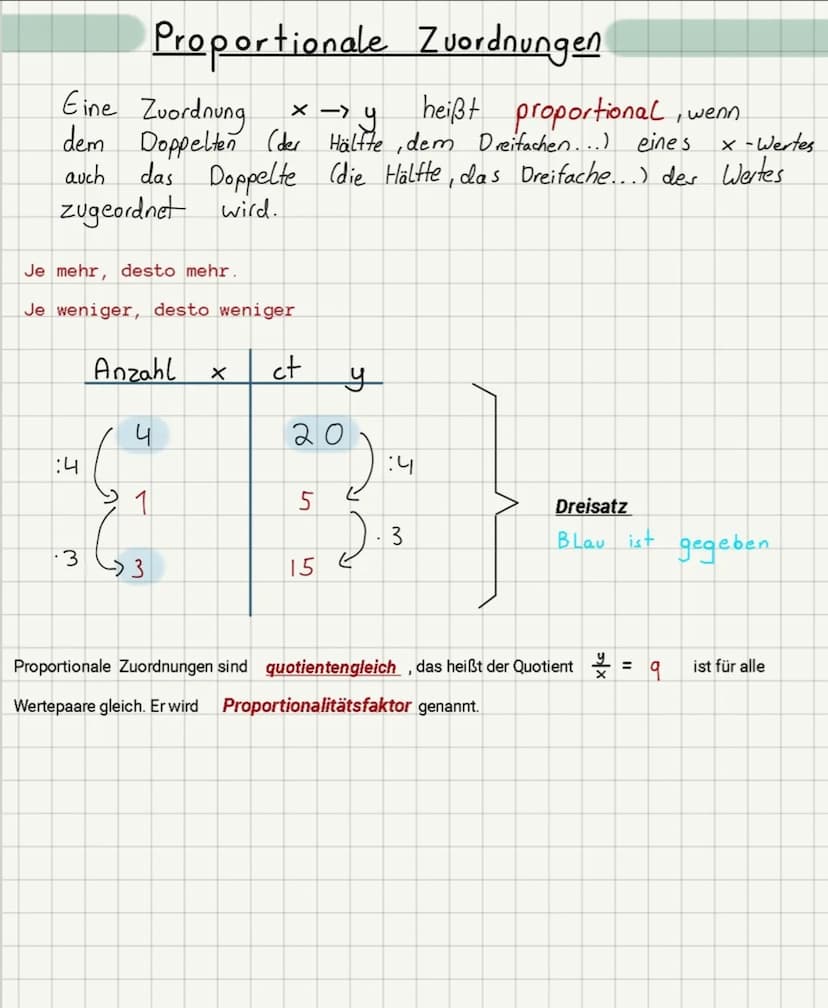 Proportionale Zuordnungen
Eine Zuordnung x → y heißt proportional, wenn
dem Doppelten (der Hälfte, dem Dreifachen...) eines x-Wertes
auch das Doppelte (die Hälfte, das Dreifache...) des Wertes
zugeordnet wird.
Je mehr, desto mehr.
Je weniger, desto weniger
Anzahl x ct y
4 20
:4 :4
1 5
·3 ·3
3 15
Dreisatz
Blau ist gegeben
Proportionale Zuordnungen sind quotientengleich, das heißt der Quotient y/x = q ist für alle
Wertepaare gleich. Er wird Proportionalitätsfaktor genannt.